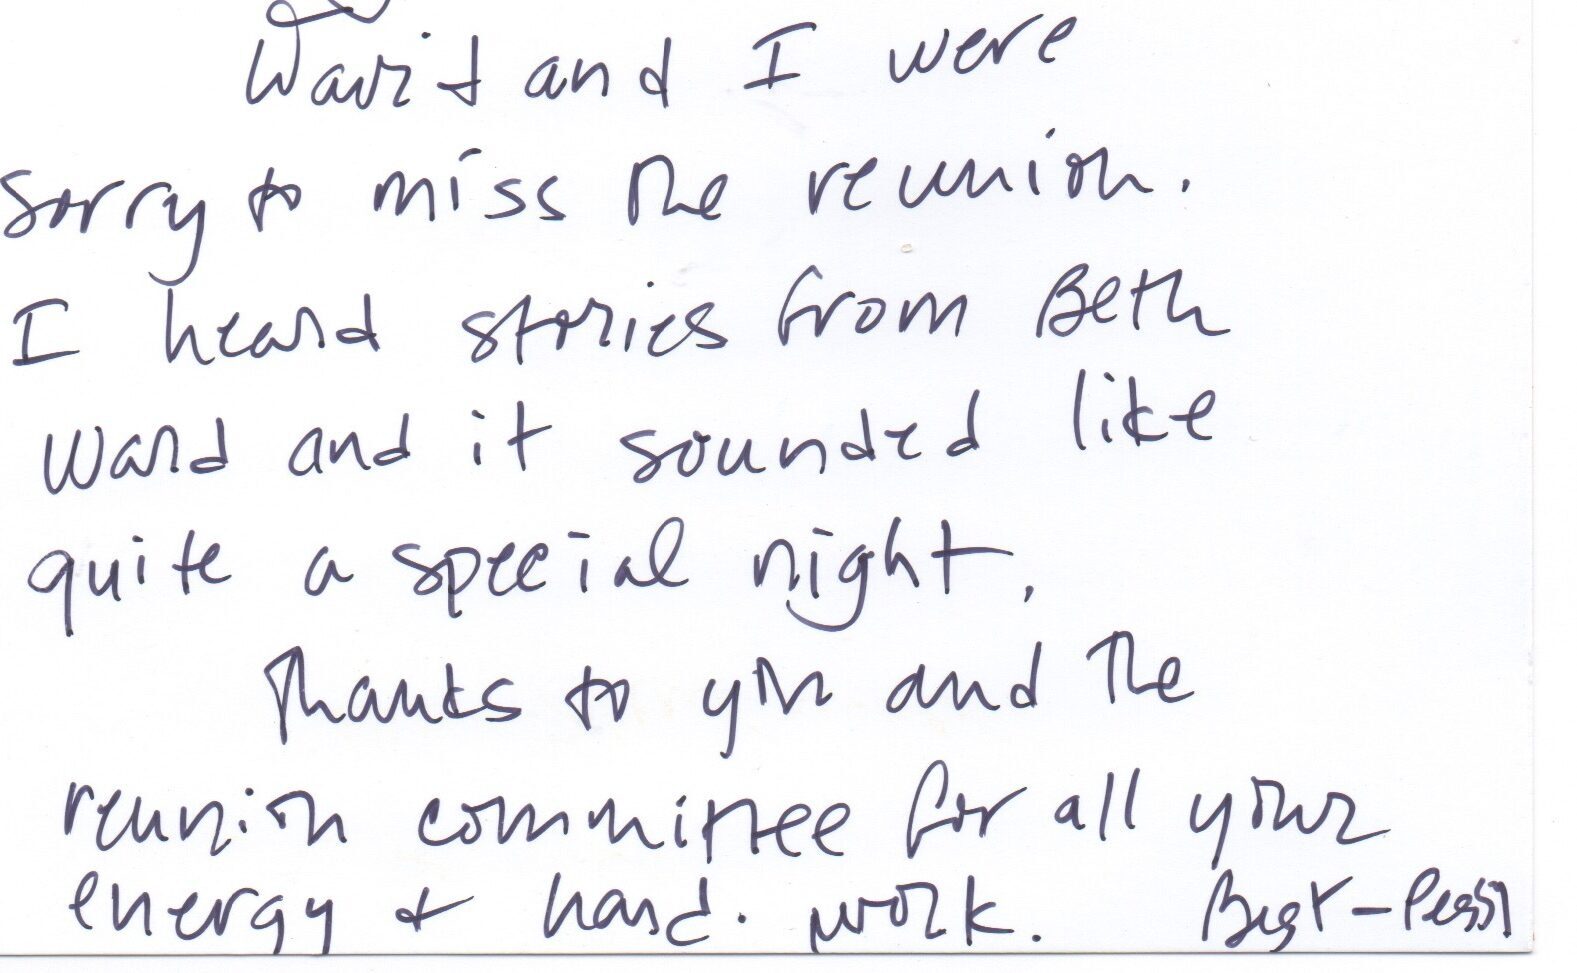 David and I were
sorry to miss the reunion.
I heard stories from Beth
Ward and it sounded like
quite a special night.
Thanks to you and the
reunion committee for all your
energy + hard work. Best - Peggy